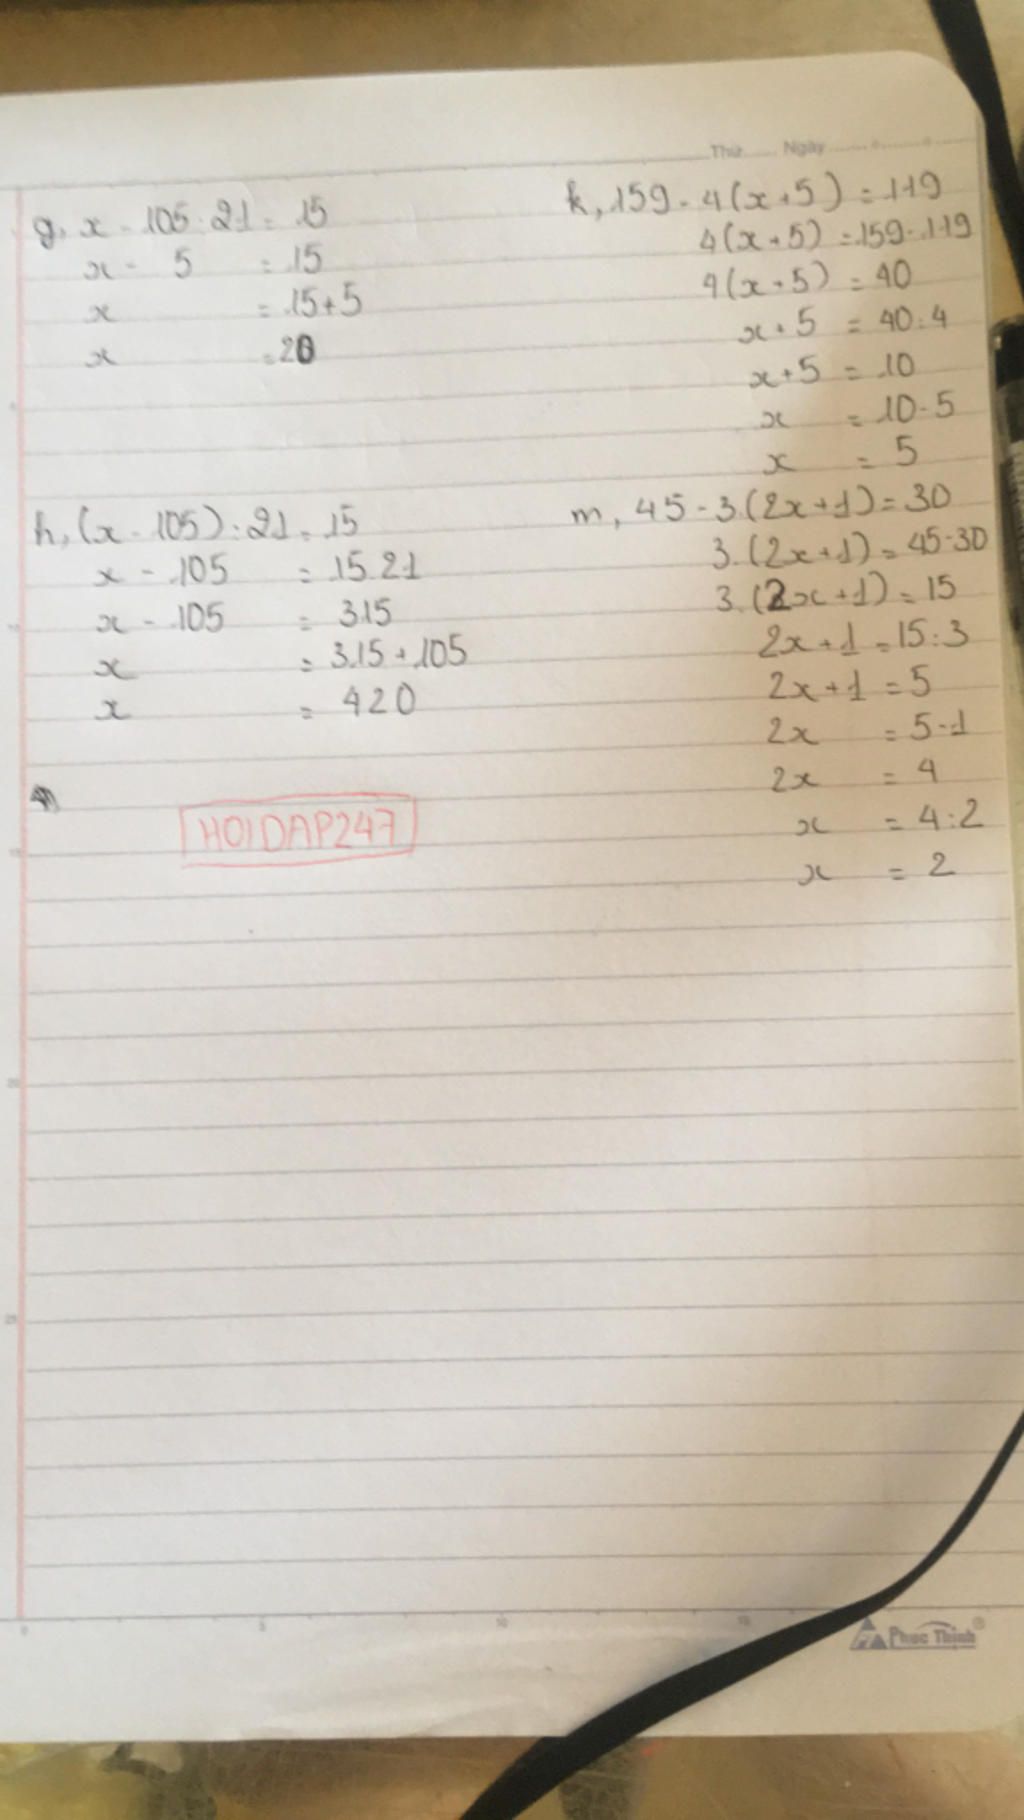 Thứ Ngày
g, x - 105 : 21 = 15
x - 5 = 15
x = 15 + 5
x = 20
h, (x - 105) : 21 = 15
x - 105 = 15.21
x - 105 = 315
x = 315 + 105
x = 420
HOIDAP247
k, 159 - 4(x+5) = 119
4(x+5) = 159 - 119
4(x+5) = 40
x+5 = 40:4
x+5 = 10
x = 10-5
x = 5
m, 45 - 3.(2x+1) = 30
3.(2x+1) = 45-30
3.(2x+1) = 15
2x+1 = 15:3
2x+1 = 5
2x = 5-1
2x = 4
x = 4:2
x = 2
Phuc Thinh